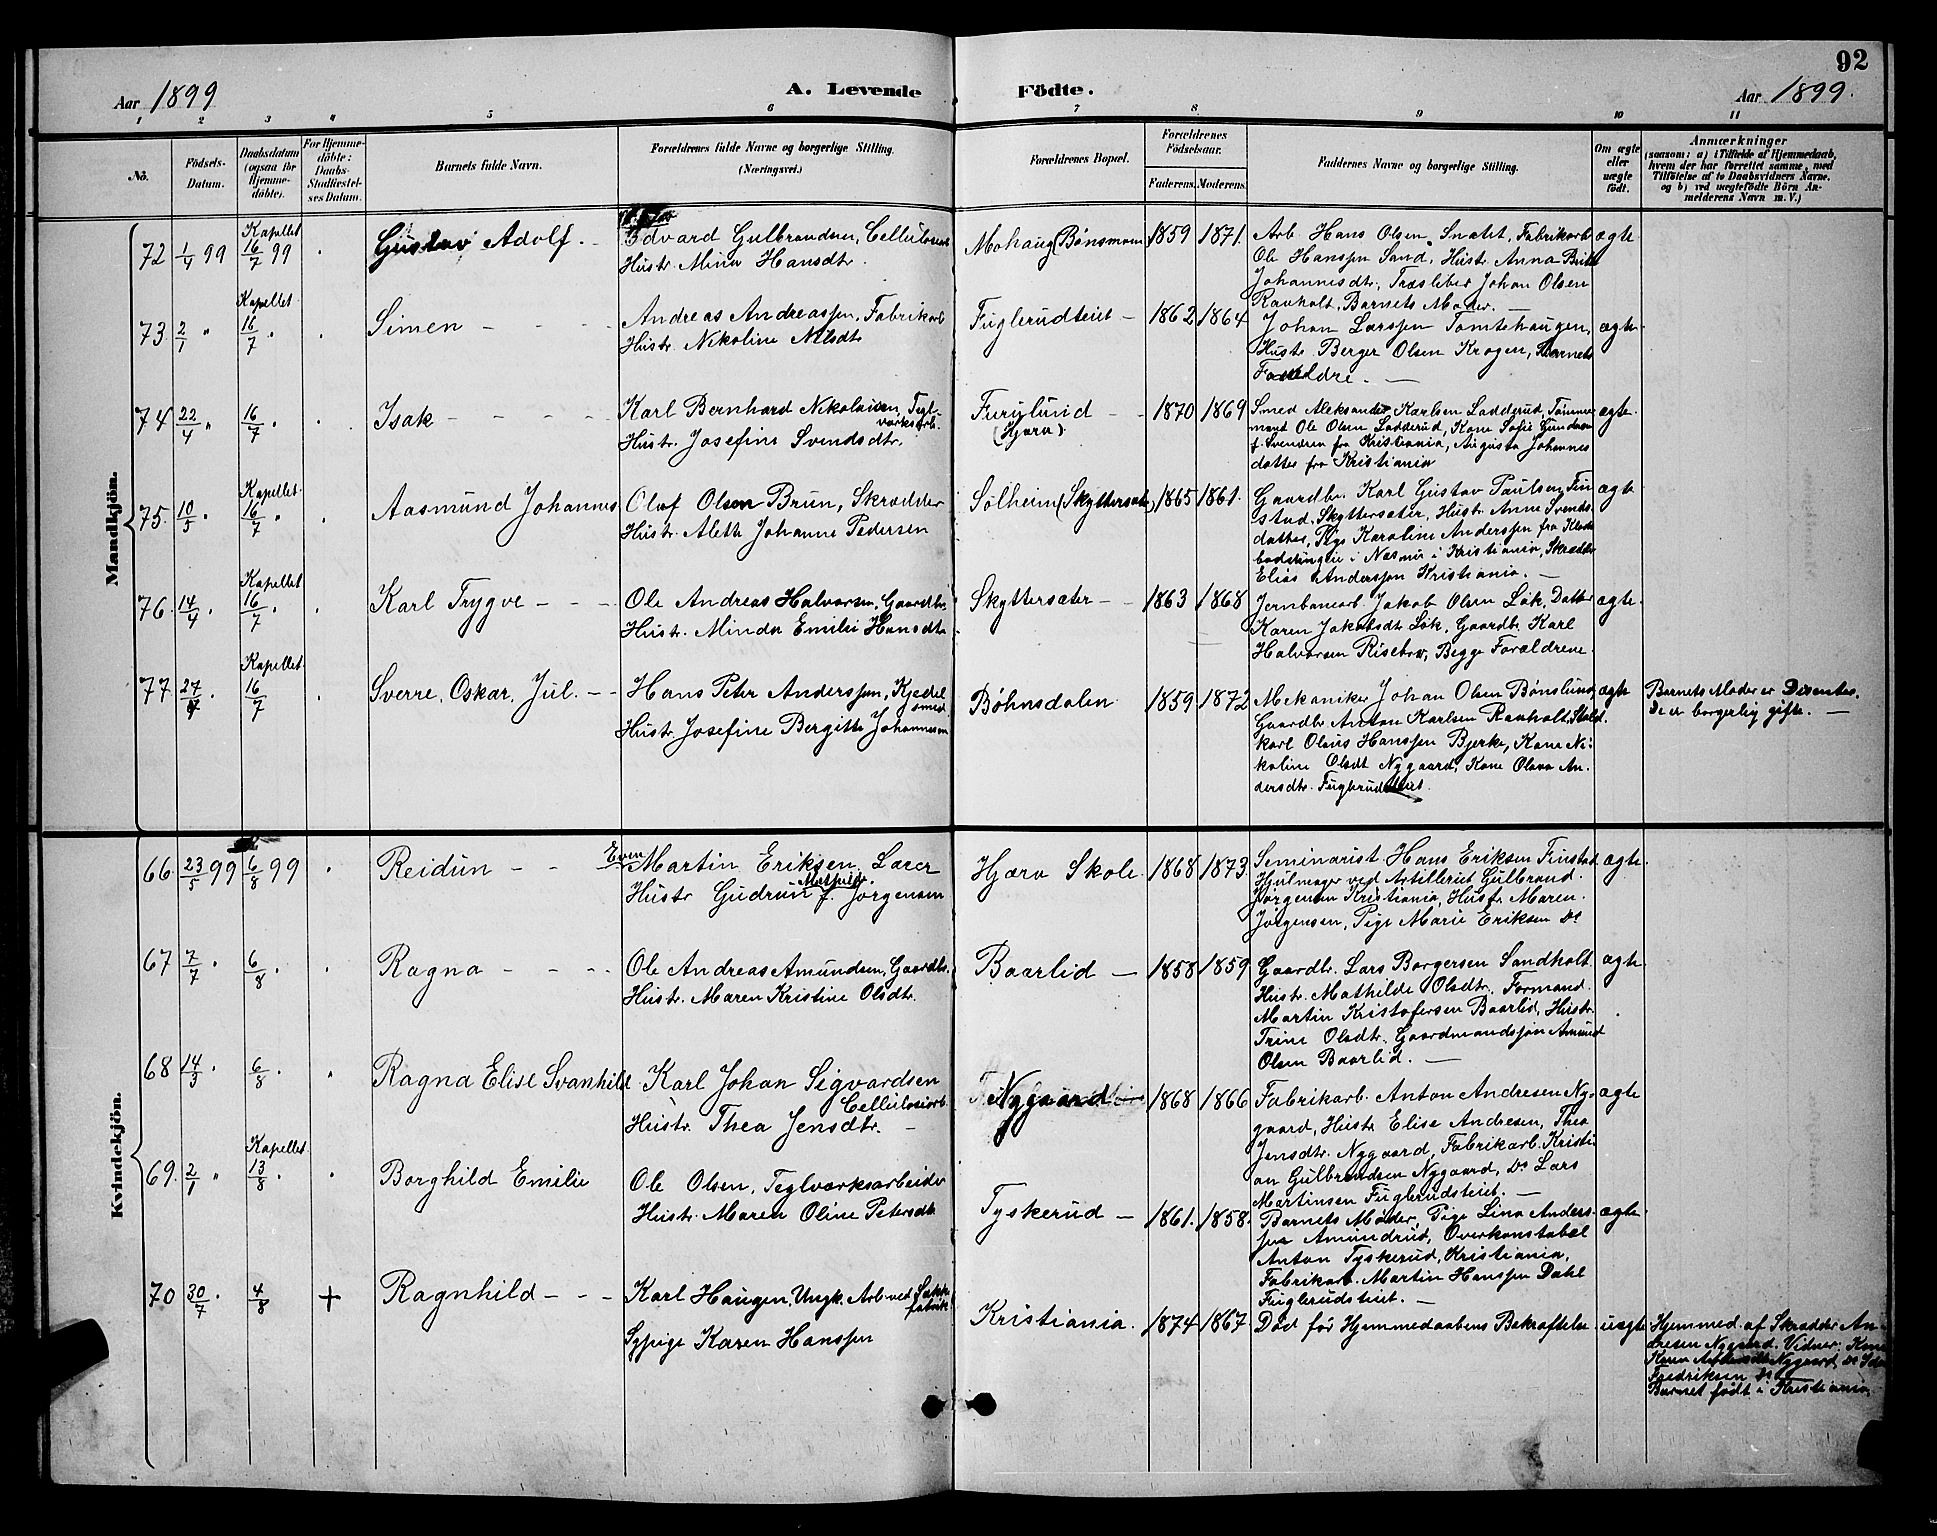 92
Aar 1899
A. Levende Födte.
Aar 1899.
1 2 3 4 5 6 7 8. 9 10 11
No.
Födsels-
Datum.
Daabsdatum
(ogsaa for
Hjemme-
döbte).
For Hjemme-
döbte:
Daabs-
Stadfæstel-
ses Datum.
Barnets fulde Navn.
Forældrenes fulde Navne og borgerlige Stilling.
(Næringsvei.)
Forældrenes Bopæl.
Forældrenes
Födselsaar.
Faderens. Moderens.
Faddernes Navne og borgerlige Stilling.
Om ægte
eller
uægte
födt.
Anmærkninger
(saasom: a) i Tilfælde af Hjemmedaab,
hvem der har forrettet samme, med
Tilföielse af to Daabsvidners Navne,
og b) ved uægtefödte Börn An-
melderens Navn m. V.)
Mandkjön.
72 1/4 99 Kapellet 16/7 99 Gustav Adolf.
Edvard Gulbrandsen, Cellulosearb
Hustr. Mina Hansdtr.
Mohaug (Bönsmoen 1859 1871.
Arb Hans Olsen Snætet, Fabrikarb ægte
Ole Hanssen Sand, Hustr. Anna Britta
Johannesdtr, Træsliber Johan Olsen
Ravholt, Barnets Moder.
73 2/1 " Kapellet 16/7 " Simen
Andreas Andreassen, Fabrikarb
Hustr. Nikoline Nilsdtr
Fuglerudteiet 1862 1864
Johan Larssen Tomtehaugen, ægte
Hustr. Berger Olsen Krogen, Barnets
Forældre.
74 22/4 " 16/7 " Isak
Karl Bernhard Nikolaisen, Tegl-
værksarb.
Hustr. Josefine Svendsdtr.
Furulund
(Hjera)
1870 1869
Smed Aleksander Karlsen Ladderud, Tömmer ægte
mand Ole Olsen Ladderud, Kone Sofie Gundersen
f. Svendsen fra Kristiania, Augusta Johannes
datter fra Kristiania
75. 10/5 " Kapellet 16/7 " Aasmund Johannes
Olaf Olsen Brun, Skrædder
Hustr. Aleth Johanne Pedersen
Solheim (Skyttersæter) 1865 1861.
Gaardbr. Karl Gustav Paulsen Fin ægte
stad, Skyttersæter, Hustr. Anne Svends
datter, Pige Karoline Anderssen fra
i Kristiania, Skrædder
Elias Anderssen Kristiania.
76. 14/4 " Kapellet 16/7 " Karl Trygve
Ole Andreas Halvorsen, Gaardbr.
Hustr. Minda Emilie Hansdtr
Skyttersæter 1863 1868
Jernbanearb. Jakob Olsen Løk, Datter ægte
Karen Jakobsdtr Løk, Gaardbr. Karl
Halvorsen Risebro, Begge Forældrene
77 27/4 " Kapellet 16/7 Sverre, Oskar, Jul.
Hans Peter Anderssen, Kjedel
smed
Hustr. Josefine Bergitte Johannesen
Böhnsdalen 1859 1872
Mekaniker Johan Olsen Bönslund ægte
Gaardbr Anton Karlsen Ravholt, Stald
karl Olaus Hanssen Bjerke, Kone Ni:
koline Olsdt Nygaard, Kone Olava An.
dersdtr. Fuglerudteiet.
Barnets Moder er Dissenter.
De er borgerlig gifte.
Kvindekjön.
66. 23/5 99 6/8 99 Reidun
Even Martin Eriksen Lærer
Hustr Gudrun Mathilde f. Jörgensen
Hjæra Skole 1868 1873.
Seminarist Hans Eriksen Finstad ægte
Hjulmager ved Artilleriet Gulbrand
Jörgensen Kristiania, Hustr. Maren
Jörgensen, Pige Marie Eriksen Ds
67 7/7 " 6/8 " Ragna
Ole Andreas Amundsen, Gaardbr.
Hustr. Maren Kristine Olsdtr.
Baarlid 1858 1859
Gaardbr. Lars Borgersen Sandholt ægte
Hustr. Mathilde Olsdtr, Formand
Martin Kristofersen Baarlid, Hustr.
Trine Olsdtr, Gaardmandssøn Amund
Olsen Baarlid.
68 14/3 " 6/8 " Ragna Elise Svanhild
Karl Johan Sigvardsen
Cellulosearb.
Hustr. Thea Jensdtr.
Nygaard 1868 1866
Fabrikarb. Anton Andresen Ny- ægte
gaard, Hustr Elise Andresen, Thea
Jensdtr. Nygaard, Fabrikarb. Kristi-
an Gulbrandsen Nygaard, Ds Lars
Martinsen Fuglerudsteiet.
69. 2/1 " Kapellet 13/8 " Borghild Emilie
Ole Olsen, Teglværksarbeider
Hustr. Maren Oline Petersdtr
Tyskerud 1861. 1858.
Barnets Moder, Pige Lina Anders- ægte
sen Amundrud, Overkonstabel
Anton Tyskerud, Kristiania,
Fabrikarb. Martin Hanssen Dahl
Fuglerudsteiet.
70 30/7 " 4/8 + Ragnhild
Karl Haugen, Ungk. Arb ved Sæk
fabrik
Sypige Karen Hanssen
Kristiania. 1874 1867.
Död för Hjemmedaabens Bekræftelse uægte
Hjemmed. af Skrædder An-
dresen Nygaard. Vidner: Kone
Karen Nygaard, Ds Ida
Fredriksen
Barnet födt i Kristiania.